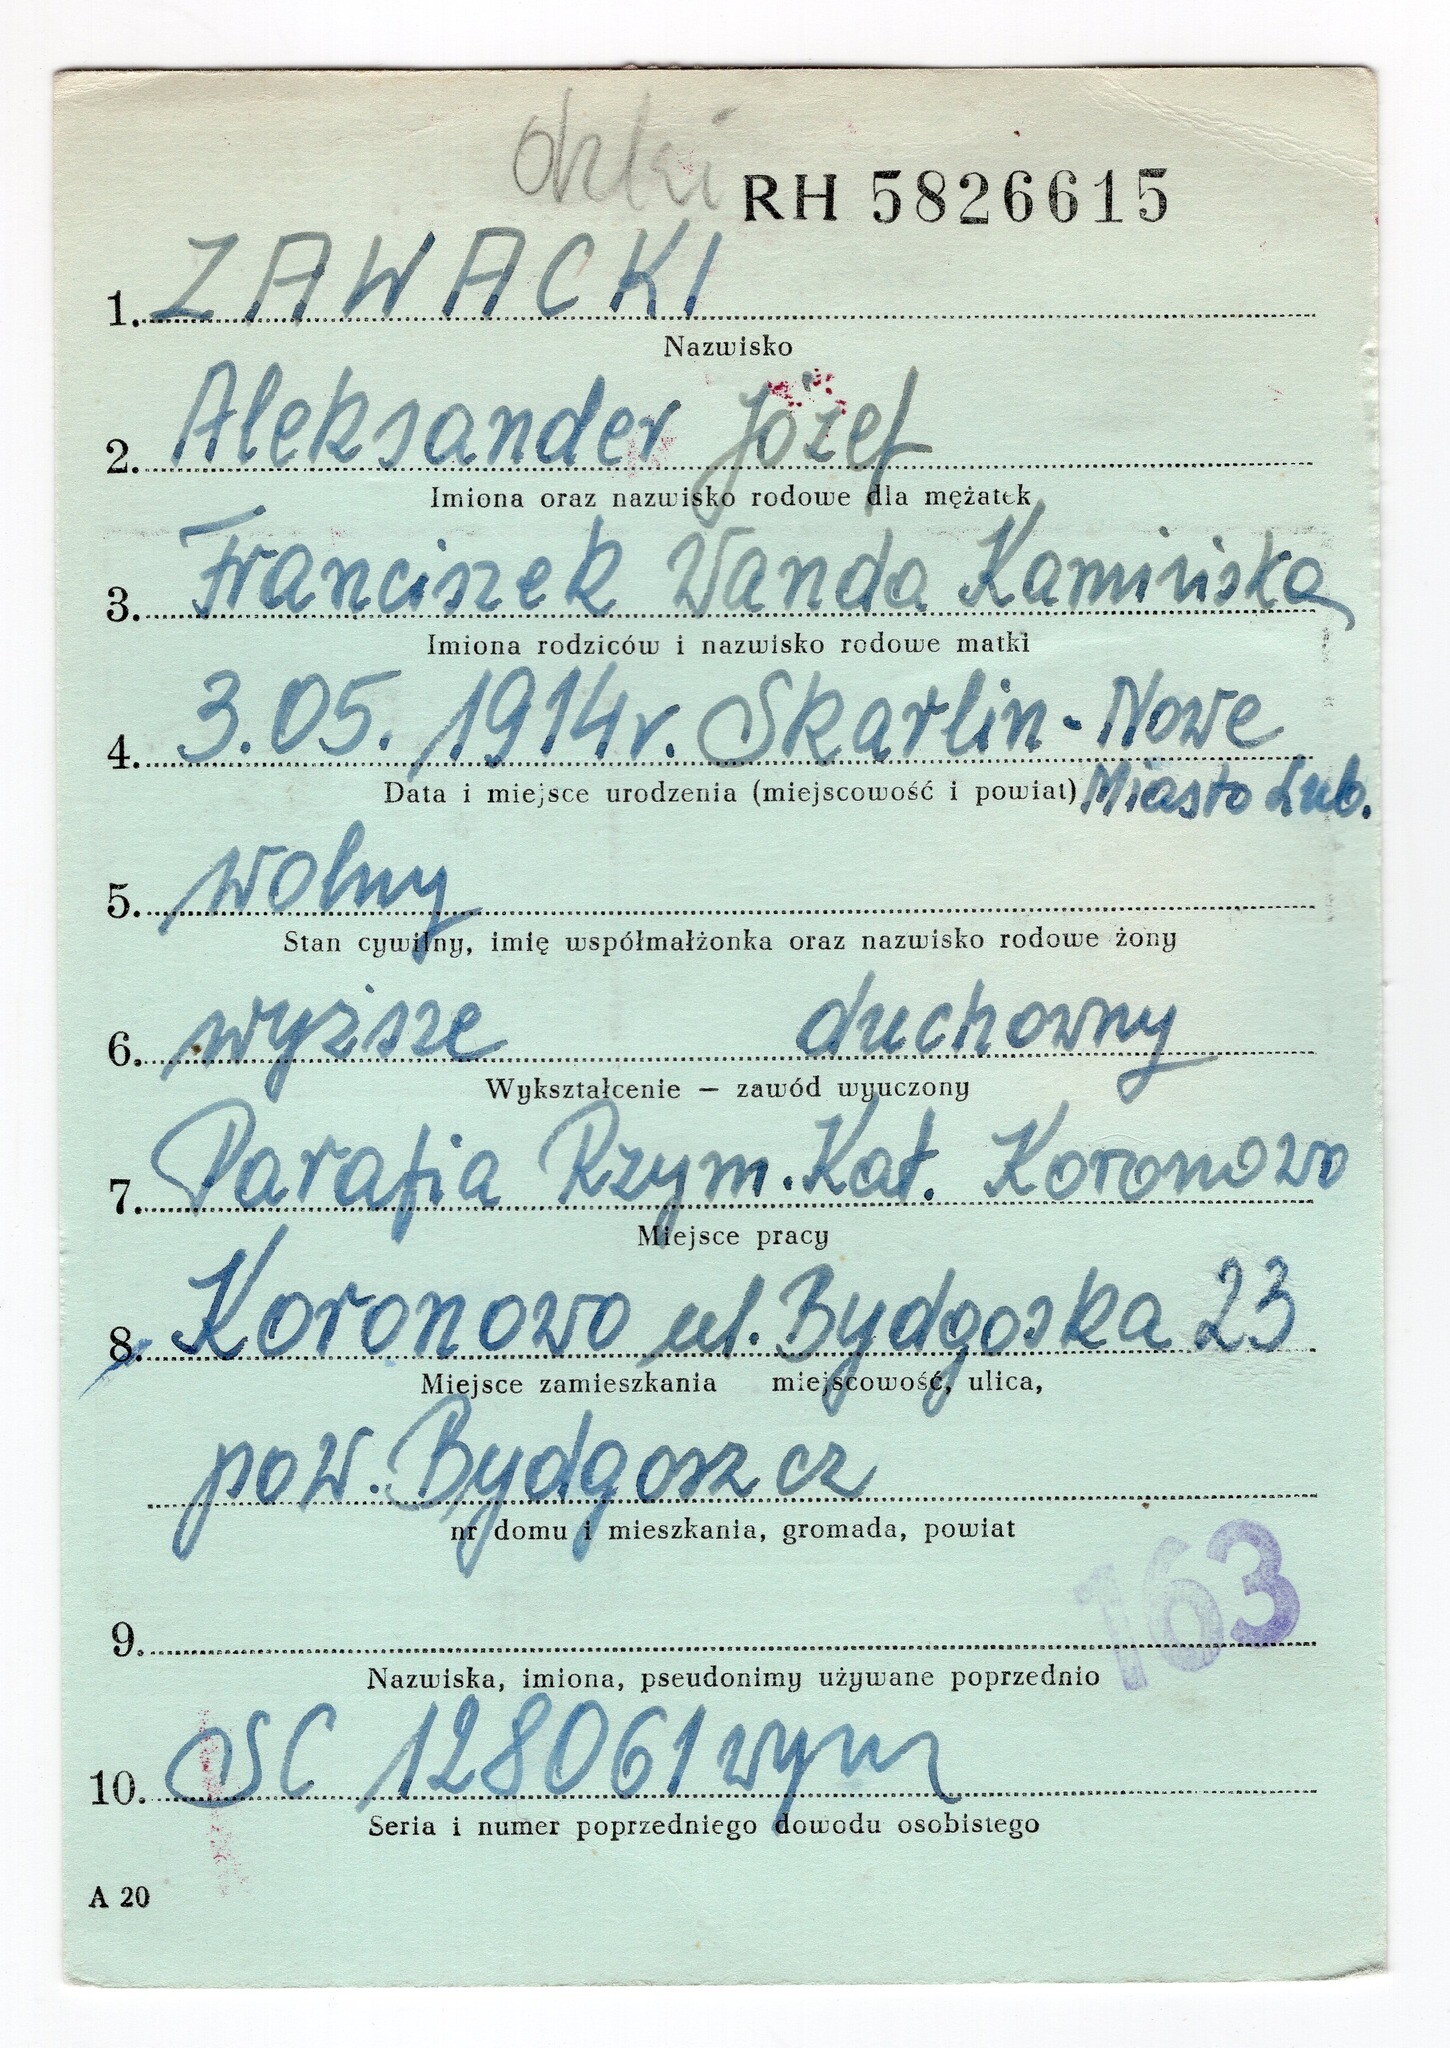 RH 5826615
1. ZAWACKI
Nazwisko
2. Aleksander Józef
Imiona oraz nazwisko rodowe dla mężatek
3. Franciszek Wanda Kamińska
Imiona rodziców i nazwisko rodowe matki
4. 3.05.1914r. Skarlin-Nowe
Data i miejsce urodzenia (miejscowość i powiat) Miasto Lub.
5. wolny
Stan cywilny, imię współmałżonka oraz nazwisko rodowe żony
6. wyższe duchowny
Wykształcenie – zawód wyuczony
7. Parafia Rzym.Kat. Koronowo
Miejsce pracy
8. Koronowo ul. Bydgoska 23
Miejsce zamieszkania miejscowość, ulica,
pow. Bydgoszcz
nr domu i mieszkania, gromada, powiat
163
9.
Nazwiska, imiona, pseudonimy używane poprzednio
10. SC 128061 wym
Seria i numer poprzedniego dowodu osobistego
A 20